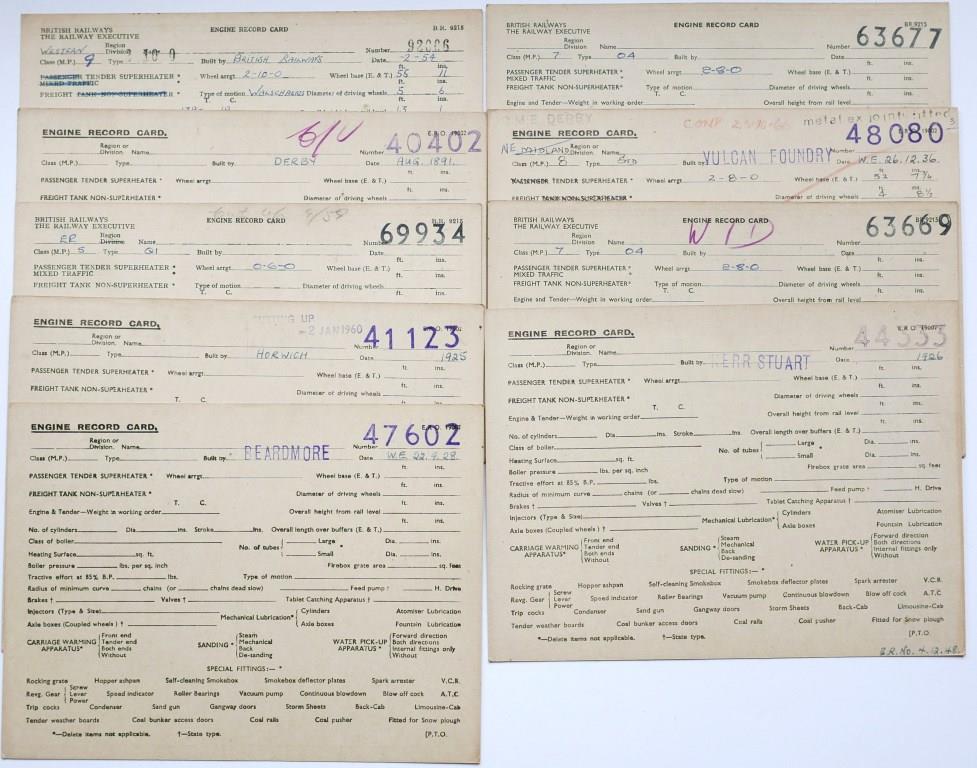 BRITISH RAILWAYS
THE RAILWAY EXECUTIVE
ENGINE RECORD CARD
B.R. 9215
WESTERN Region
Division
Number 92006
Class (M.P.) 9 Type 2 10 0 Built by BRITISH RAILWAYS Date -2-54
ft. ins.
PASSENGER TENDER SUPERHEATER Wheel arrgt. 2-10-0 Wheel base (E. & T.) 55 11
MIXED TRAFFIC
FREIGHT TANK NON-SUPERHEATER Type of motion WALSCHAERTS Diameter of driving wheels 5 6
T. C. ft. ins.
13 1
ENGINE RECORD CARD.
E.R.O. 19002
40402
Region or
Division. Name
Number
Class (M.P.) Type Built by DERBY Date AUG. 1891.
ft. ins.
PASSENGER TENDER SUPERHEATER * Wheel arrgt. Wheel base (E. & T.)
ft. ins.
FREIGHT TANK NON-SUPERHEATER * Diameter of driving wheels
BRITISH RAILWAYS
THE RAILWAY EXECUTIVE
ENGINE RECORD CARD
B.R. 9215
ER Region
Division Name
Number 69934
Class (M.P.) 5 Type Q1 Built by Date
ft. ins.
PASSENGER TENDER SUPERHEATER * Wheel arrgt. 0-6-0 Wheel base (E. & T.)
MIXED TRAFFIC *
FREIGHT TANK NON-SUPERHEATER * Type of motion Diameter of driving wheels
T. C. ft. ins.
ENGINE RECORD CARD.
CUTTING UP
-2 JAN 1960
E.R.O. 19002
Region or
Division. Name
Number 41123
Class (M.P.) Type Built by HORWICH Date 1925
ft. ins.
PASSENGER TENDER SUPERHEATER * Wheel arrgt. Wheel base (E. & T.)
ft. ins.
FREIGHT TANK NON-SUPERHEATER * Diameter of driving wheels
T. C. ft. ins.
ENGINE RECORD CARD.
E.R.O. 19002
Region or
Division. Name
Number 47602
Class (M.P.) Type Built by BEARDMORE Date W.E. 22.9.28.
ft. ins.
PASSENGER TENDER SUPERHEATER * Wheel arrgt. Wheel base (E. & T.)
ft. ins.
FREIGHT TANK NON-SUPERHEATER * Diameter of driving wheels
T. C. ft. ins.
Engine & Tender—Weight in working order Overall height from rail level
ft. ins.
No. of cylinders Dia. ins. Stroke ins. Overall length over buffers (E. & T.)
Class of boiler No. of tubes Large * Dia. ins.
Heating Surface sq. ft. Small Dia. ins.
Boiler pressure lbs. per sq. inch Firebox grate area sq. feet
Tractive effort at 85% B.P. lbs. Type of motion
Radius of minimum curve chains (or chains dead slow) Feed pump † H. Drive
Brakes † Valves † Tablet Catching Apparatus †
Injectors (Type & Size) Mechanical Lubrication* Cylinders Atomiser Lubrication
Axle boxes (Coupled wheels) † Axle boxes Fountain Lubrication
CARRIAGE WARMING APPARATUS* Front end Tender end Both ends Without
SANDING * Steam Mechanical Back De-sanding
WATER PICK-UP APPARATUS * Forward direction Both directions Internal fittings only Without
SPECIAL FITTINGS:— *
Rocking grate Hopper ashpan Self-cleaning Smokebox Smokebox deflector plates Spark arrester V.C.R.
Revg. Gear Screw Lever Power Speed indicator Roller Bearings Vacuum pump Continuous blowdown Blow off cock A.T.C.
Trip cocks Condenser Sand gun Gangway doors Storm Sheets Back-Cab Limousine-Cab
Tender weather boards Coal bunker access doors Coal rails Coal pusher Fitted for Snow plough
*—Delete items not applicable. †—State type. [P.T.O.
BRITISH RAILWAYS
THE RAILWAY EXECUTIVE
ENGINE RECORD CARD
BR. 9215
Region
Division Name
Number 63677
Class (M.P.) 7 Type 04 Built by Date
ft. ins.
PASSENGER TENDER SUPERHEATER * Wheel arrgt. 2-8-0 Wheel base (E. & T.)
MIXED TRAFFIC *
FREIGHT TANK NON-SUPERHEATER * Type of motion Diameter of driving wheels
T. C. ft. ins.
Engine and Tender—Weight in working order Overall height from rail level
DERBY
metal ex joint fitted
ENGINE RECORD CARD.
48080
Region or
NE MIDLAND Division. Name
Number
Class (M.P.) 8 Type STD Built by VULCAN FOUNDRY Date W.E. 26.12.36.
ft. ins.
PASSENGER TENDER SUPERHEATER * Wheel arrgt. 2-8-0 Wheel base (E. & T.) 52 7¾
ft. ins.
FREIGHT TANK NON-SUPERHEATER * Diameter of driving wheels 4 8½
BRITISH RAILWAYS
THE RAILWAY EXECUTIVE
ENGINE RECORD CARD
BR. 9215
WTD
Region
Division Name
Number 63669
Class (M.P.) 7 Type 04 Built by Date
ft. ins.
PASSENGER TENDER SUPERHEATER * Wheel arrgt. 2-8-0 Wheel base (E. & T.)
MIXED TRAFFIC *
FREIGHT TANK NON-SUPERHEATER * Type of motion Diameter of driving wheels
T. C. ft. ins.
Engine and Tender—Weight in working order Overall height from rail level
ENGINE RECORD CARD.
E.R.O. 19002
44333
Region or
Division. Name
Number
Class (M.P.) Type Built by KERR STUART Date 1926
ft. ins.
PASSENGER TENDER SUPERHEATER * Wheel arrgt. Wheel base (E. & T.)
ft. ins.
FREIGHT TANK NON-SUPERHEATER * Diameter of driving wheels
T. C. ft. ins.
Engine & Tender—Weight in working order Overall height from rail level
ft. ins.
No. of cylinders Dia. ins. Stroke ins. Overall length over buffers (E. & T.)
Class of boiler No. of tubes Large * Dia. ins.
Heating Surface sq. ft. Small Dia. ins.
Boiler pressure lbs. per sq. inch Firebox grate area sq. feet
Tractive effort at 85% B.P. lbs. Type of motion
Radius of minimum curve chains (or chains dead slow) Feed pump † H. Drive
Brakes † Valves † Tablet Catching Apparatus †
Injectors (Type & Size) Mechanical Lubrication* Cylinders Atomiser Lubrication
Axle boxes (Coupled wheels) † Axle boxes Fountain Lubrication
CARRIAGE WARMING APPARATUS* Front end Tender end Both ends Without
SANDING * Steam Mechanical Back De-sanding
WATER PICK-UP APPARATUS * Forward direction Both directions Internal fittings only Without
SPECIAL FITTINGS:— *
Rocking grate Hopper ashpan Self-cleaning Smokebox Smokebox deflector plates Spark arrester V.C.R.
Revg. Gear Screw Lever Power Speed indicator Roller Bearings Vacuum pump Continuous blowdown Blow off cock A.T.C
Trip cocks Condenser Sand gun Gangway doors Storm Sheets Back-Cab Limousine-Cab
Tender weather boards Coal bunker access doors Coal rails Coal pusher Fitted for Snow plough
*—Delete items not applicable. †—State type. [P.T.O.
B.R. No. 4.12.48.